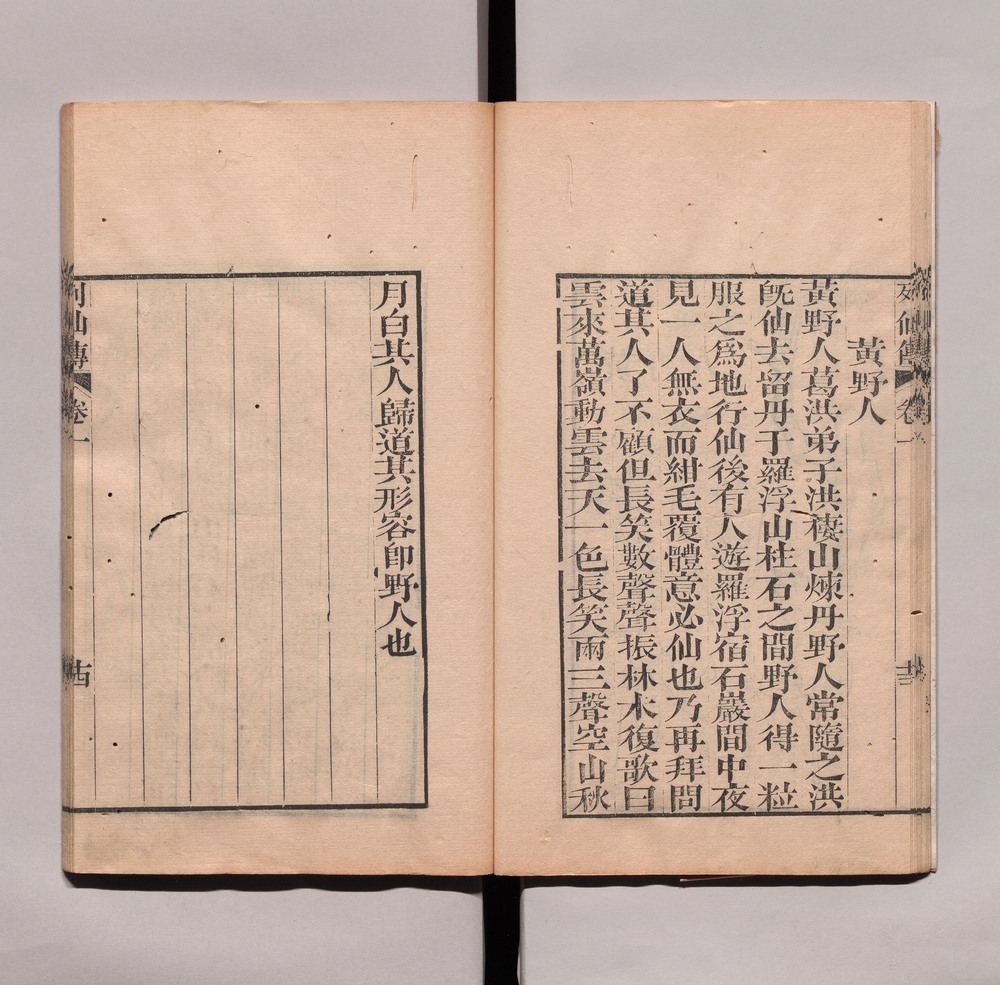 列仙傳 卷一
黃野人
黃野人葛洪弟子洪棲山煉丹野人常隨之洪
旣仙去留丹于羅浮山柱石之間野人得一粒
服之爲地行仙後有人遊羅浮宿石巖間中夜
見一人無衣而紺毛覆體意必仙也乃再拜問
道其人了不顧但長笑數聲聲振林木復歌曰
雲來萬嶺動雲去天一色長笑兩三聲空山秋
月白其人歸道其形容卽野人也
列仙傳 卷一